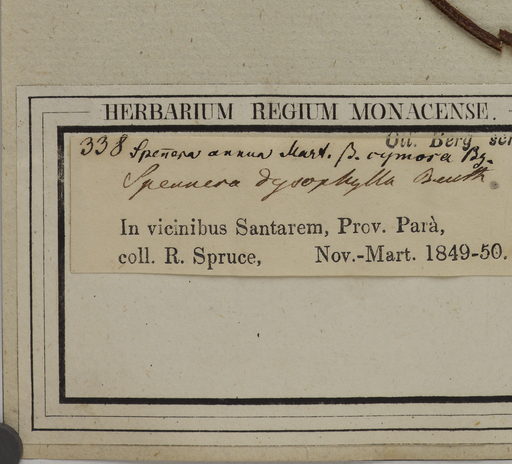 HERBARIUM REGIUM MONACENSE.
Berg
338 Spennera annua Mart. β. cymosa Bg.
Spennera dysophylla Benth.
In vicinibus Santarem, Prov. Parà,
coll. R. Spruce, Nov.-Mart. 1849-50.